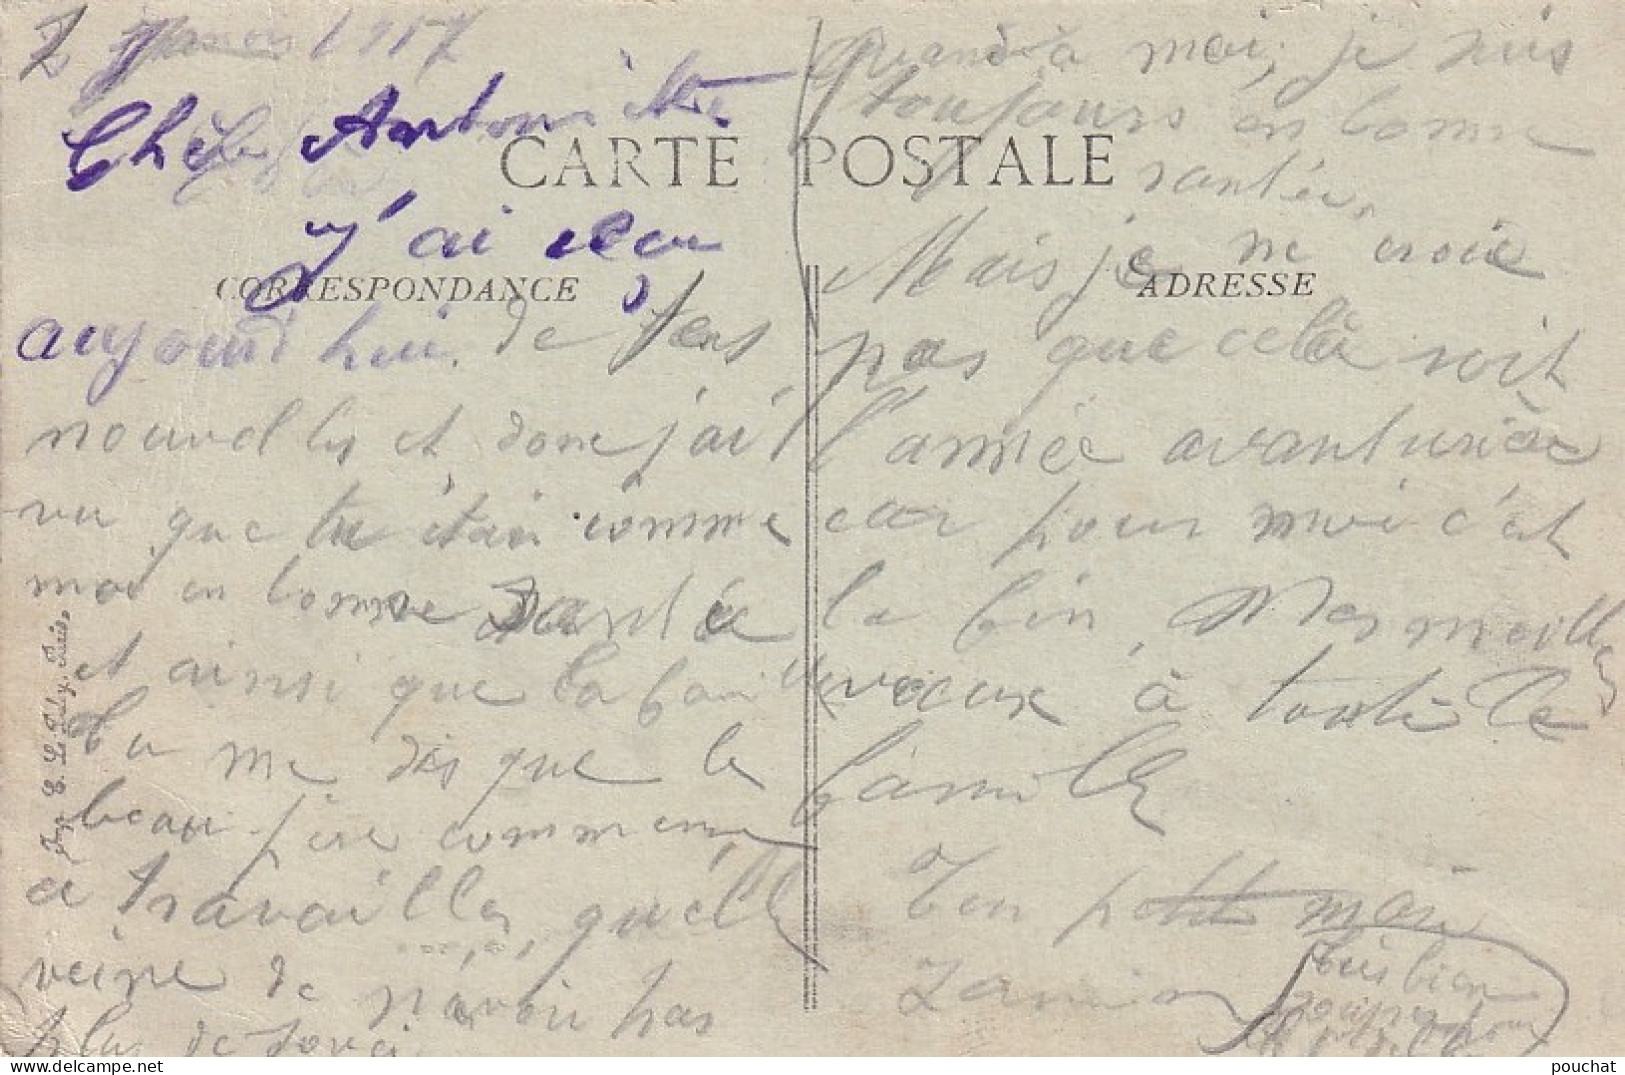 Chère Antoinette
CARTE POSTALE
J'ai reçu
CORRESPONDANCE
aujourd'hui de tens
nouvelles et donc j'ai
vu que tu étais comme
moi en bonne santée
et ainsi que la famille
Tu me dis que le
beau-père commence
a travailler, quelle
veine de n'avoir pas
plus de souci
Imp. E. Le Deley, Paris.
Quand à moi, je suis
toujours en bonne
santée,
Mais je ne crois
ADRESSE
pas que celà soit
l'année avanturière
car pour moi c'est
la fin, Mes meilleurs
vœux à toute la
famille
Ton petit
bien
pouchat